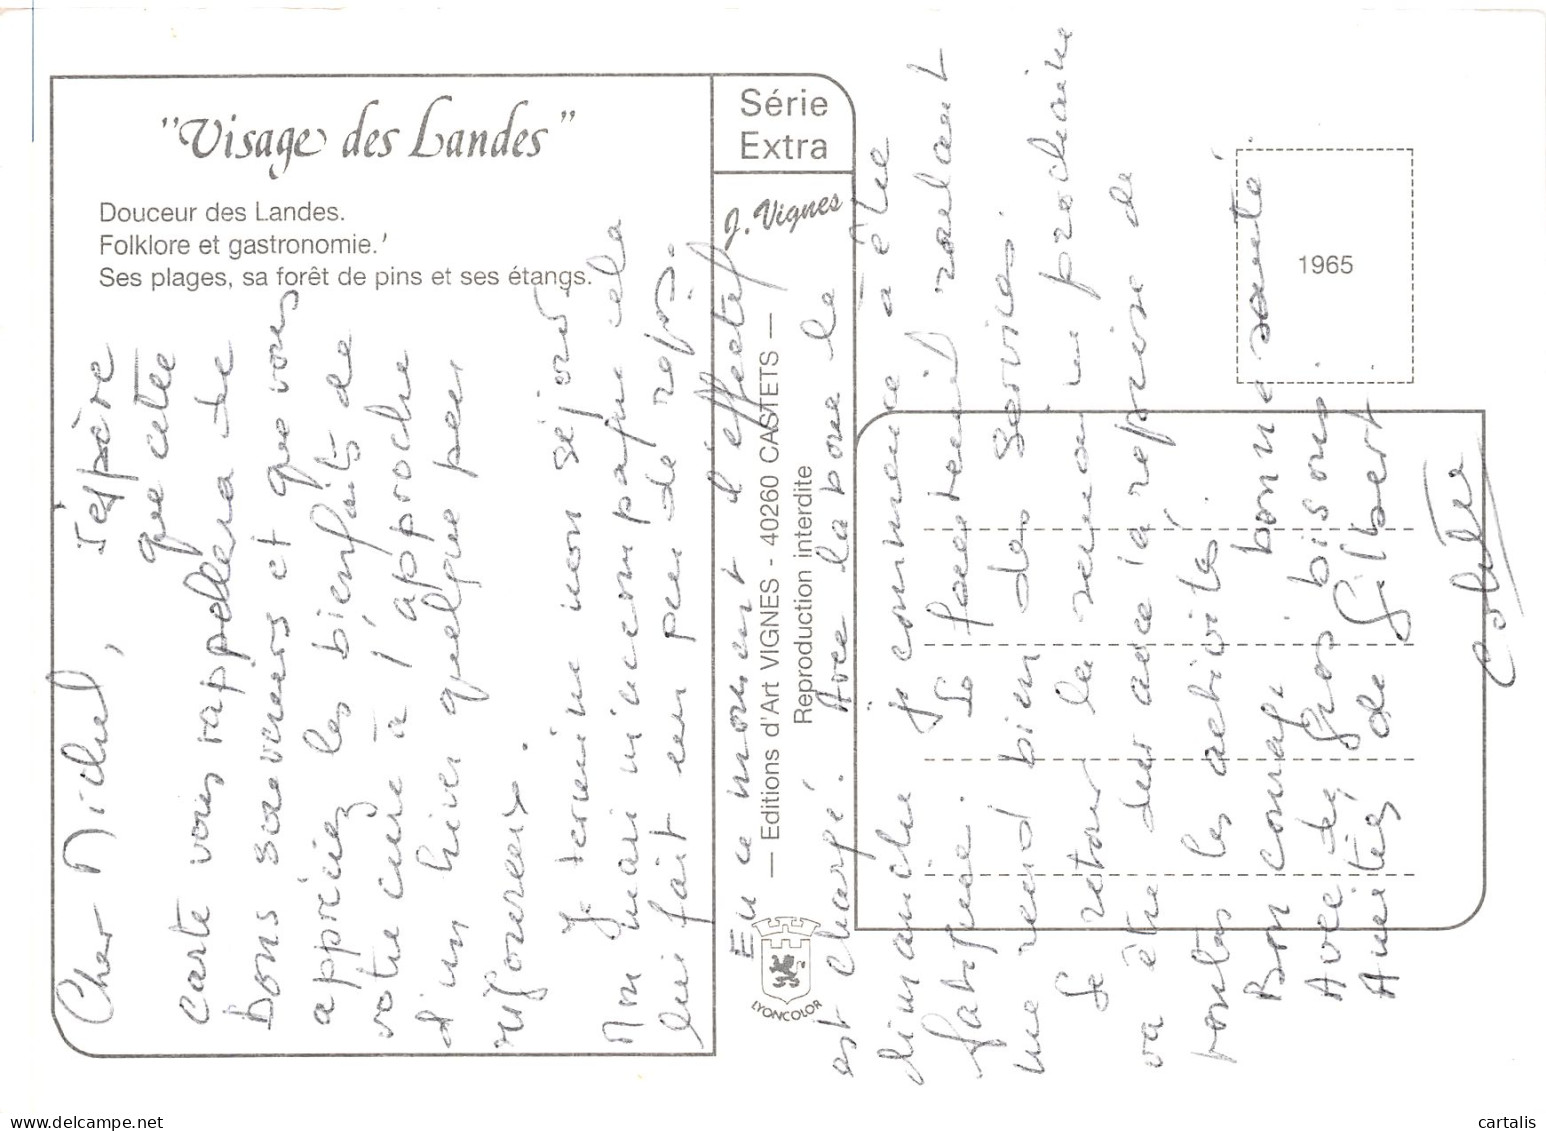 "Visage des Landes"
Douceur des Landes.
Folklore et gastronomie.
Ses plages, sa forêt de pins et ses étangs.
Série
Extra
J. Vignes
— Editions d'Art VIGNES - 40260 CASTETS —
Reproduction interdite
LYONCOLOR
1965
Cher Michel,
J'espère
que cette
carte vous rappellera de
bons souvenirs et que vous
appréciez les bienfaits de
votre cure à l'approche
d'un hiver quelque peu
rigoureux.
Je termine mon séjour
Mon mari m'accompagne cela
lui fait un peu de repos.
En ce moment l'effectif
est chargé. Avec la boue le
dimanche je commence à être
fatiguée. Le fauteuil roulant
me rend bien des services.
Le retour la semaine prochaine
va être dur avec la reprise de
toutes les activités.
Bon courage bonne santé.
Avec des gros bisous
Amitiés de Gilbert
Colette
cartalis.delcampe.net